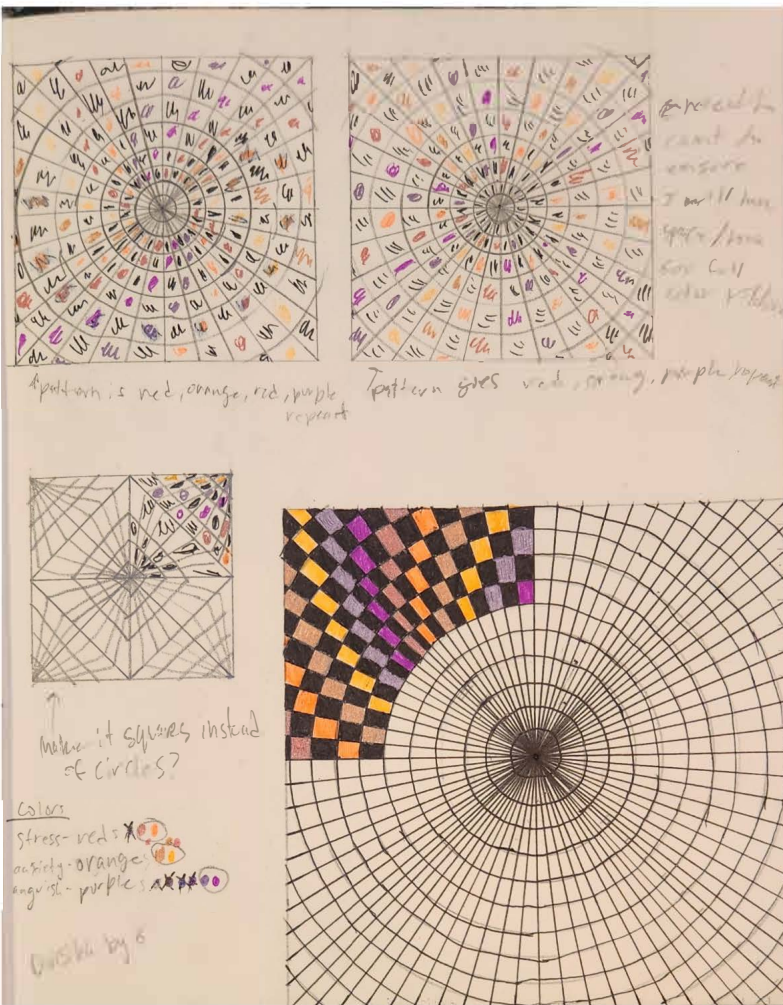 I will have
space/time
for
↑pattern is red, orange, red, purple
repeart
↑pattern goes red, orang, purple, repeat
Make it squares instead
of circles?
Colors
stress-reds
anxiety-oranges
anguish-purples
Divisible by 6